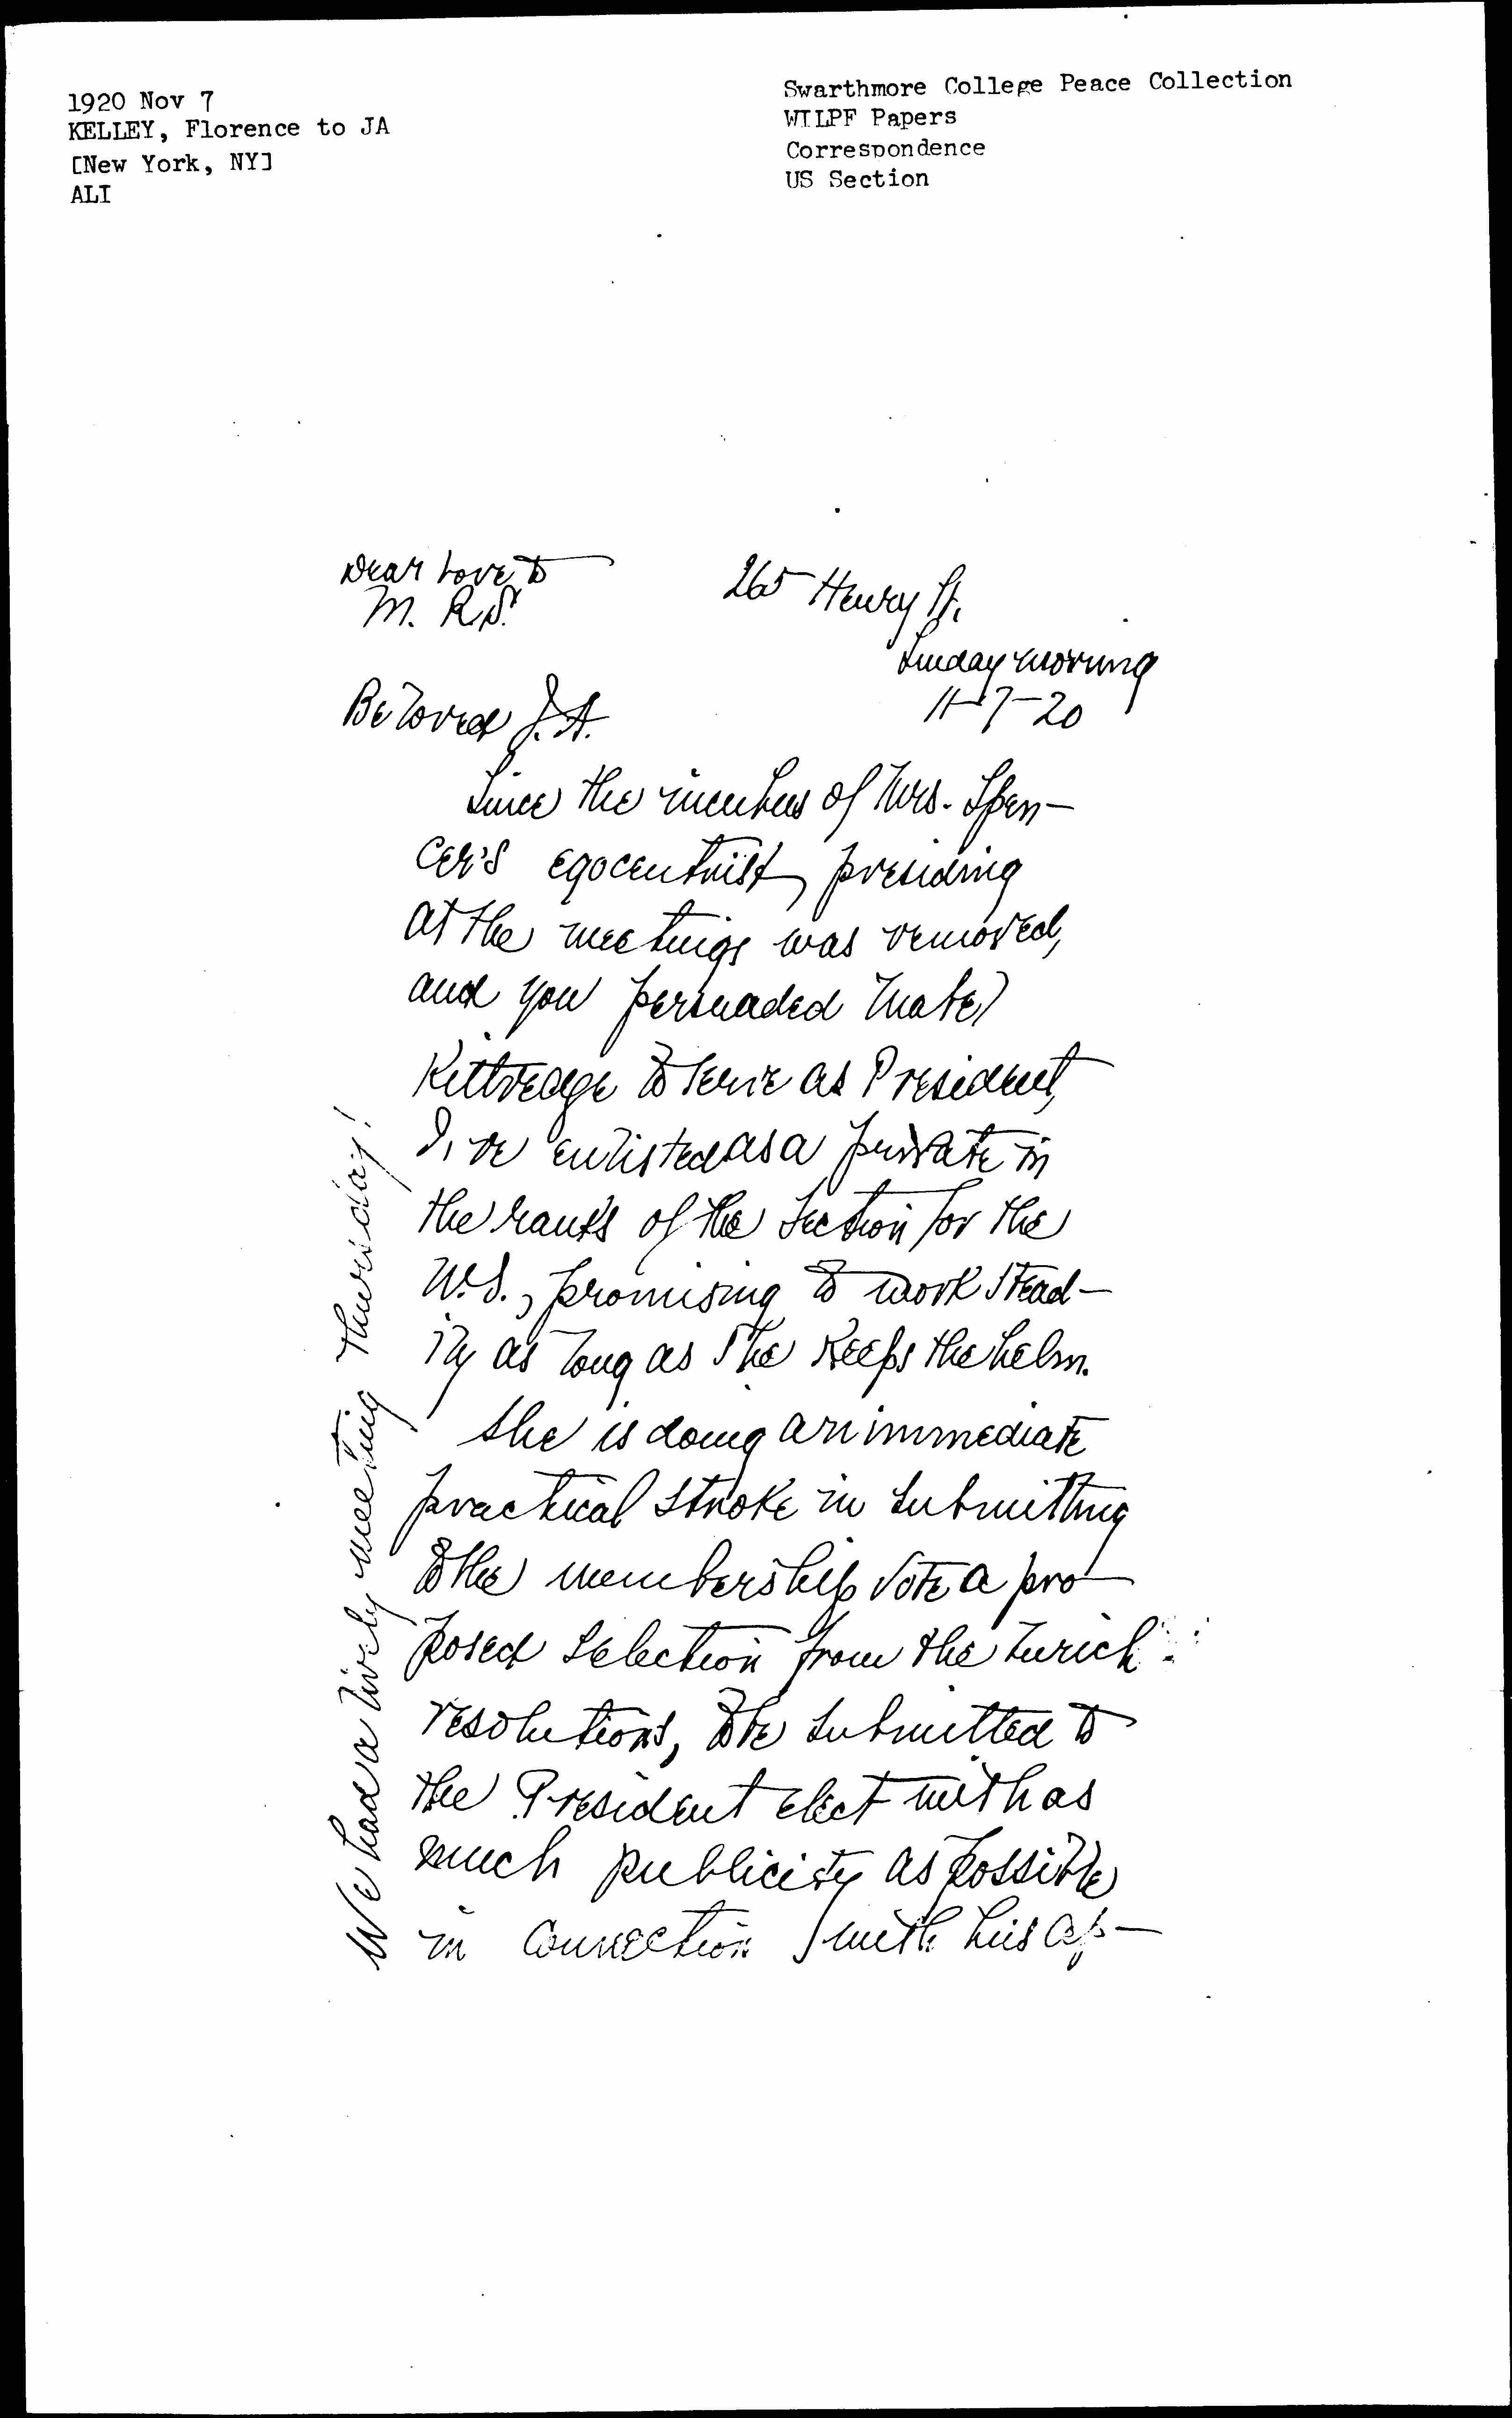 1920 Nov 7
KELLEY, Florence to JA
[New York, NY]
ALI
Swarthmore College Peace Collection
WILPF Papers
Correspondence
US Section
Dear love to
M. R. S.
265 Henry St.
Sunday morning
11-7-20
Beloved J. A.
Since the incubus of Mrs. Spen-
cer's egocentrist presiding
at the meetings was removed,
and you persuaded Mabel
Kittredge to serve as President,
I've enlisted as a private in
the ranks of the Section for the
U.S., promising to work stead-
ily as long as she keeps the helm.
She is doing an immediate
practical stroke in submitting
to the membership vote a pro-
posed selection from the Zurich
resolutions, to be submitted to
the President elect with as
much publicity as possible
in connection with his ap-
We had a lively meeting Thursday!